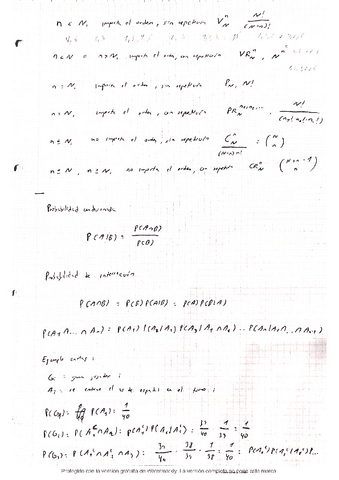 n < N, importa el orden, sin repetición V_N^n N!/(N-n)!
n < N o n > N, importa el orden, con repetición VR_N^n, N^n
n = N, importa el orden, sin repetición P_N, N!
importa el orden, con repetición PR_N N!
n ≤ N, no importa el orden, sin repetición C_N^n = (N n)
n ≤ N, n ≥ N, no importa el orden, con repetición CR_N^n (N+n-1 n)
Probabilidad condicionada
P(A|B) = P(A∩B)/P(B)
Probabilidad de intersección
P(A∩B) = P(B)P(A|B) = P(A)P(B|A)
P(A₁∩...∩Aₙ) = P(A₁)P(A₂|A₁)P(A₃|A₁∩A₂)...P(Aₙ|A₁∩...∩Aₙ₋₁)
Ejemplo :
G: = gana jugador i
el as de espadas en el turno i
P(G₁) = P(A₁) = 1/40
P(G₂) = P(A₁ᶜ∩A₂) = P(A₁ᶜ)P(A₂|A₁ᶜ) = 39/40 · 1/39 = 1/40
P(G₃) = P(A₁ᶜ∩A₂ᶜ∩A₃) = 39/40 · 38/39 · 1/38 = 1/40 =
Protegido con la versión gratuita de Watermarkly. La versión completa no pone esta marca.